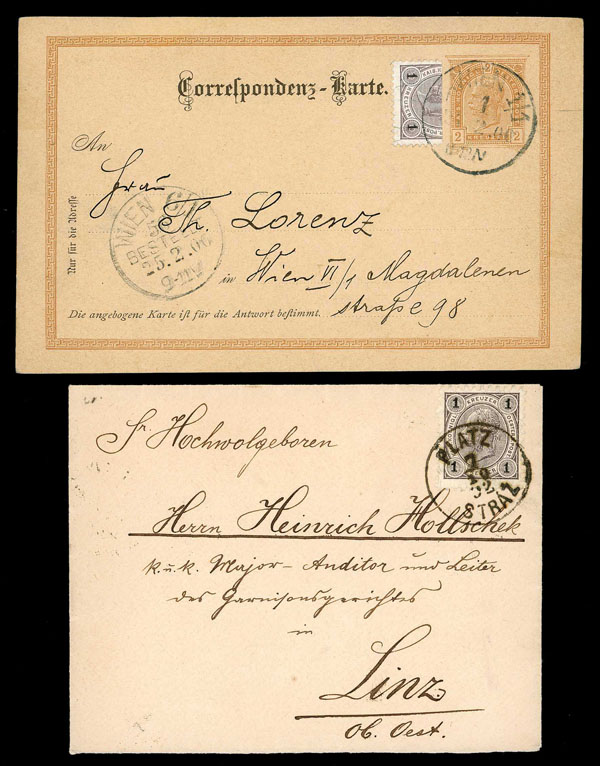 Correspondenz-Karte.
1
1
2
2 2
An
Frau
Th. Lorenz
in Wien VI/1 Magdalenen
straße 98
Nur für die Adresse
WIEN
BESTELLT
15.2.00
Die angebogene Karte ist für die Antwort bestimmt.
1 KREUZER 1
1 1
PLATZ
STRAZ
Sr. Hochwolgeboren
Herrn Heinrich Hollschek
k. u. k. Major-Auditor und Leiter
des Garnisonsgerichtes
in
Linz
Ob. Oest.